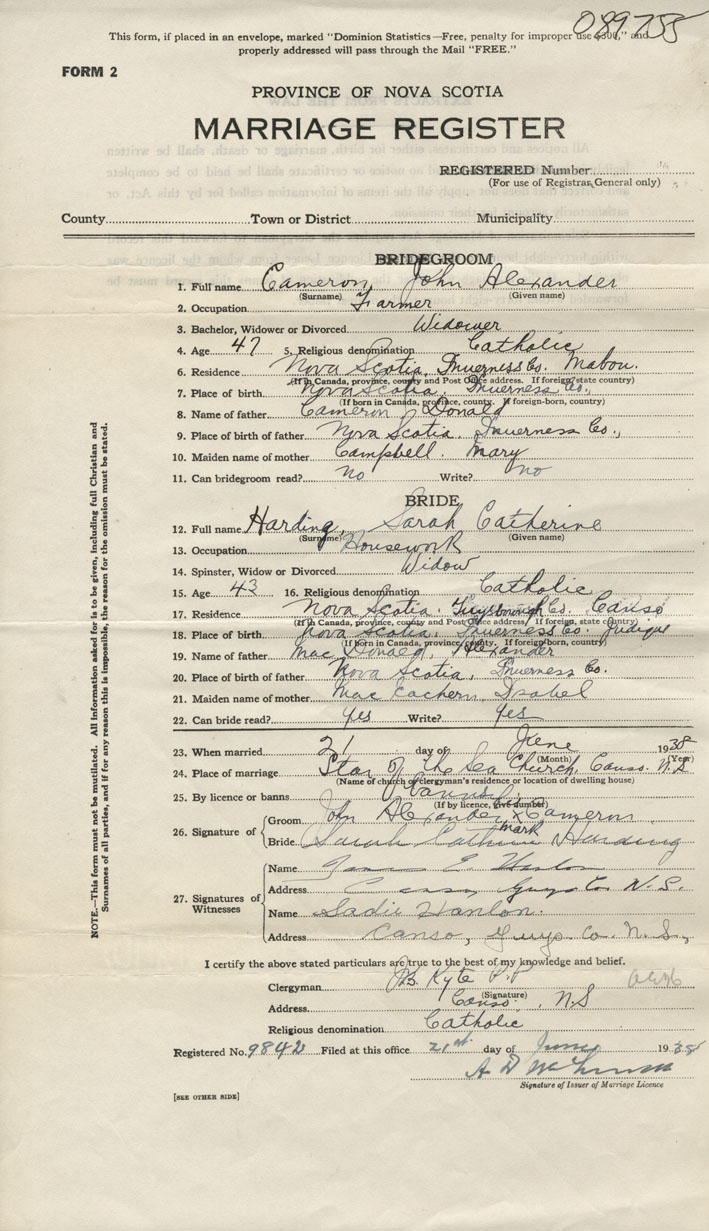 089755
This form, if placed in an envelope, marked "Dominion Statistics—Free, penalty for improper use $300," and
properly addressed will pass through the Mail "FREE."
FORM 2
PROVINCE OF NOVA SCOTIA
MARRIAGE REGISTER
REGISTERED Number
(For use of Registrar General only)
County Town or District Municipality
BRIDEGROOM
1. Full name Cameron, John Alexander
(Surname) (Given name)
2. Occupation Farmer
3. Bachelor, Widower or Divorced Widower
4. Age 47 5. Religious denomination Catholic
6. Residence Nova Scotia, Inverness Co. Mabou.
(If in Canada, province, county and Post Office address. If foreign, state country)
7. Place of birth Nova Scotia, Inverness Co.,
(If born in Canada, province, county. If foreign-born, country)
8. Name of father Cameron, Donald
9. Place of birth of father Nova Scotia. Inverness Co.,
10. Maiden name of mother Campbell. Mary
11. Can bridegroom read? no Write? no
BRIDE
12. Full name Harding, Sarah Catherine
(Surname) (Given name)
13. Occupation Housework
14. Spinster, Widow or Divorced Widow
15. Age 43 16. Religious denomination Catholic
17. Residence Nova Scotia. Guysborough Co. Canso
(If in Canada, province, county and Post Office address, If foreign, state country)
18. Place of birth Nova Scotia. Inverness Co. Judique
(If born in Canada, province, county. If foreign-born, country)
19. Name of father Mac Donald, Alexander
20. Place of birth of father Nova Scotia, Inverness Co.
21. Maiden name of mother Mac Eachern, Isabel
22. Can bride read? Yes Write? Yes
23. When married 21 day of June 1938
(Month) (Year)
24. Place of marriage Star of the Sea Church, Canso. N.S
(Name of church or clergyman's residence or location of dwelling house)
25. By licence or banns Banns
(If by licence, give number)
26. Signature of
Groom John Alexander X Cameron
mark
Bride Sarah Catherine Harding
27. Signatures of
Witnesses
Name E. Hanlon
Address Canso, Guys Co. N.S.
Name Sadie Hanlon.
Address Canso, Guys Co. N.S.,
I certify the above stated particulars are true to the best of my knowledge and belief.
Clergyman Kyte P.P
(Signature)
Address Canso. N.S
Religious denomination Catholic
Registered No. Filed at this office 21st day of June 1938
A D
Signature of Issuer of Marriage Licence
[SEE OTHER SIDE]
NOTE.—This form must not be mutilated. All information asked for is to be given, including full Christian and
Surnames of all parties, and if for any reason this is impossible, the reason for the omission must be stated.